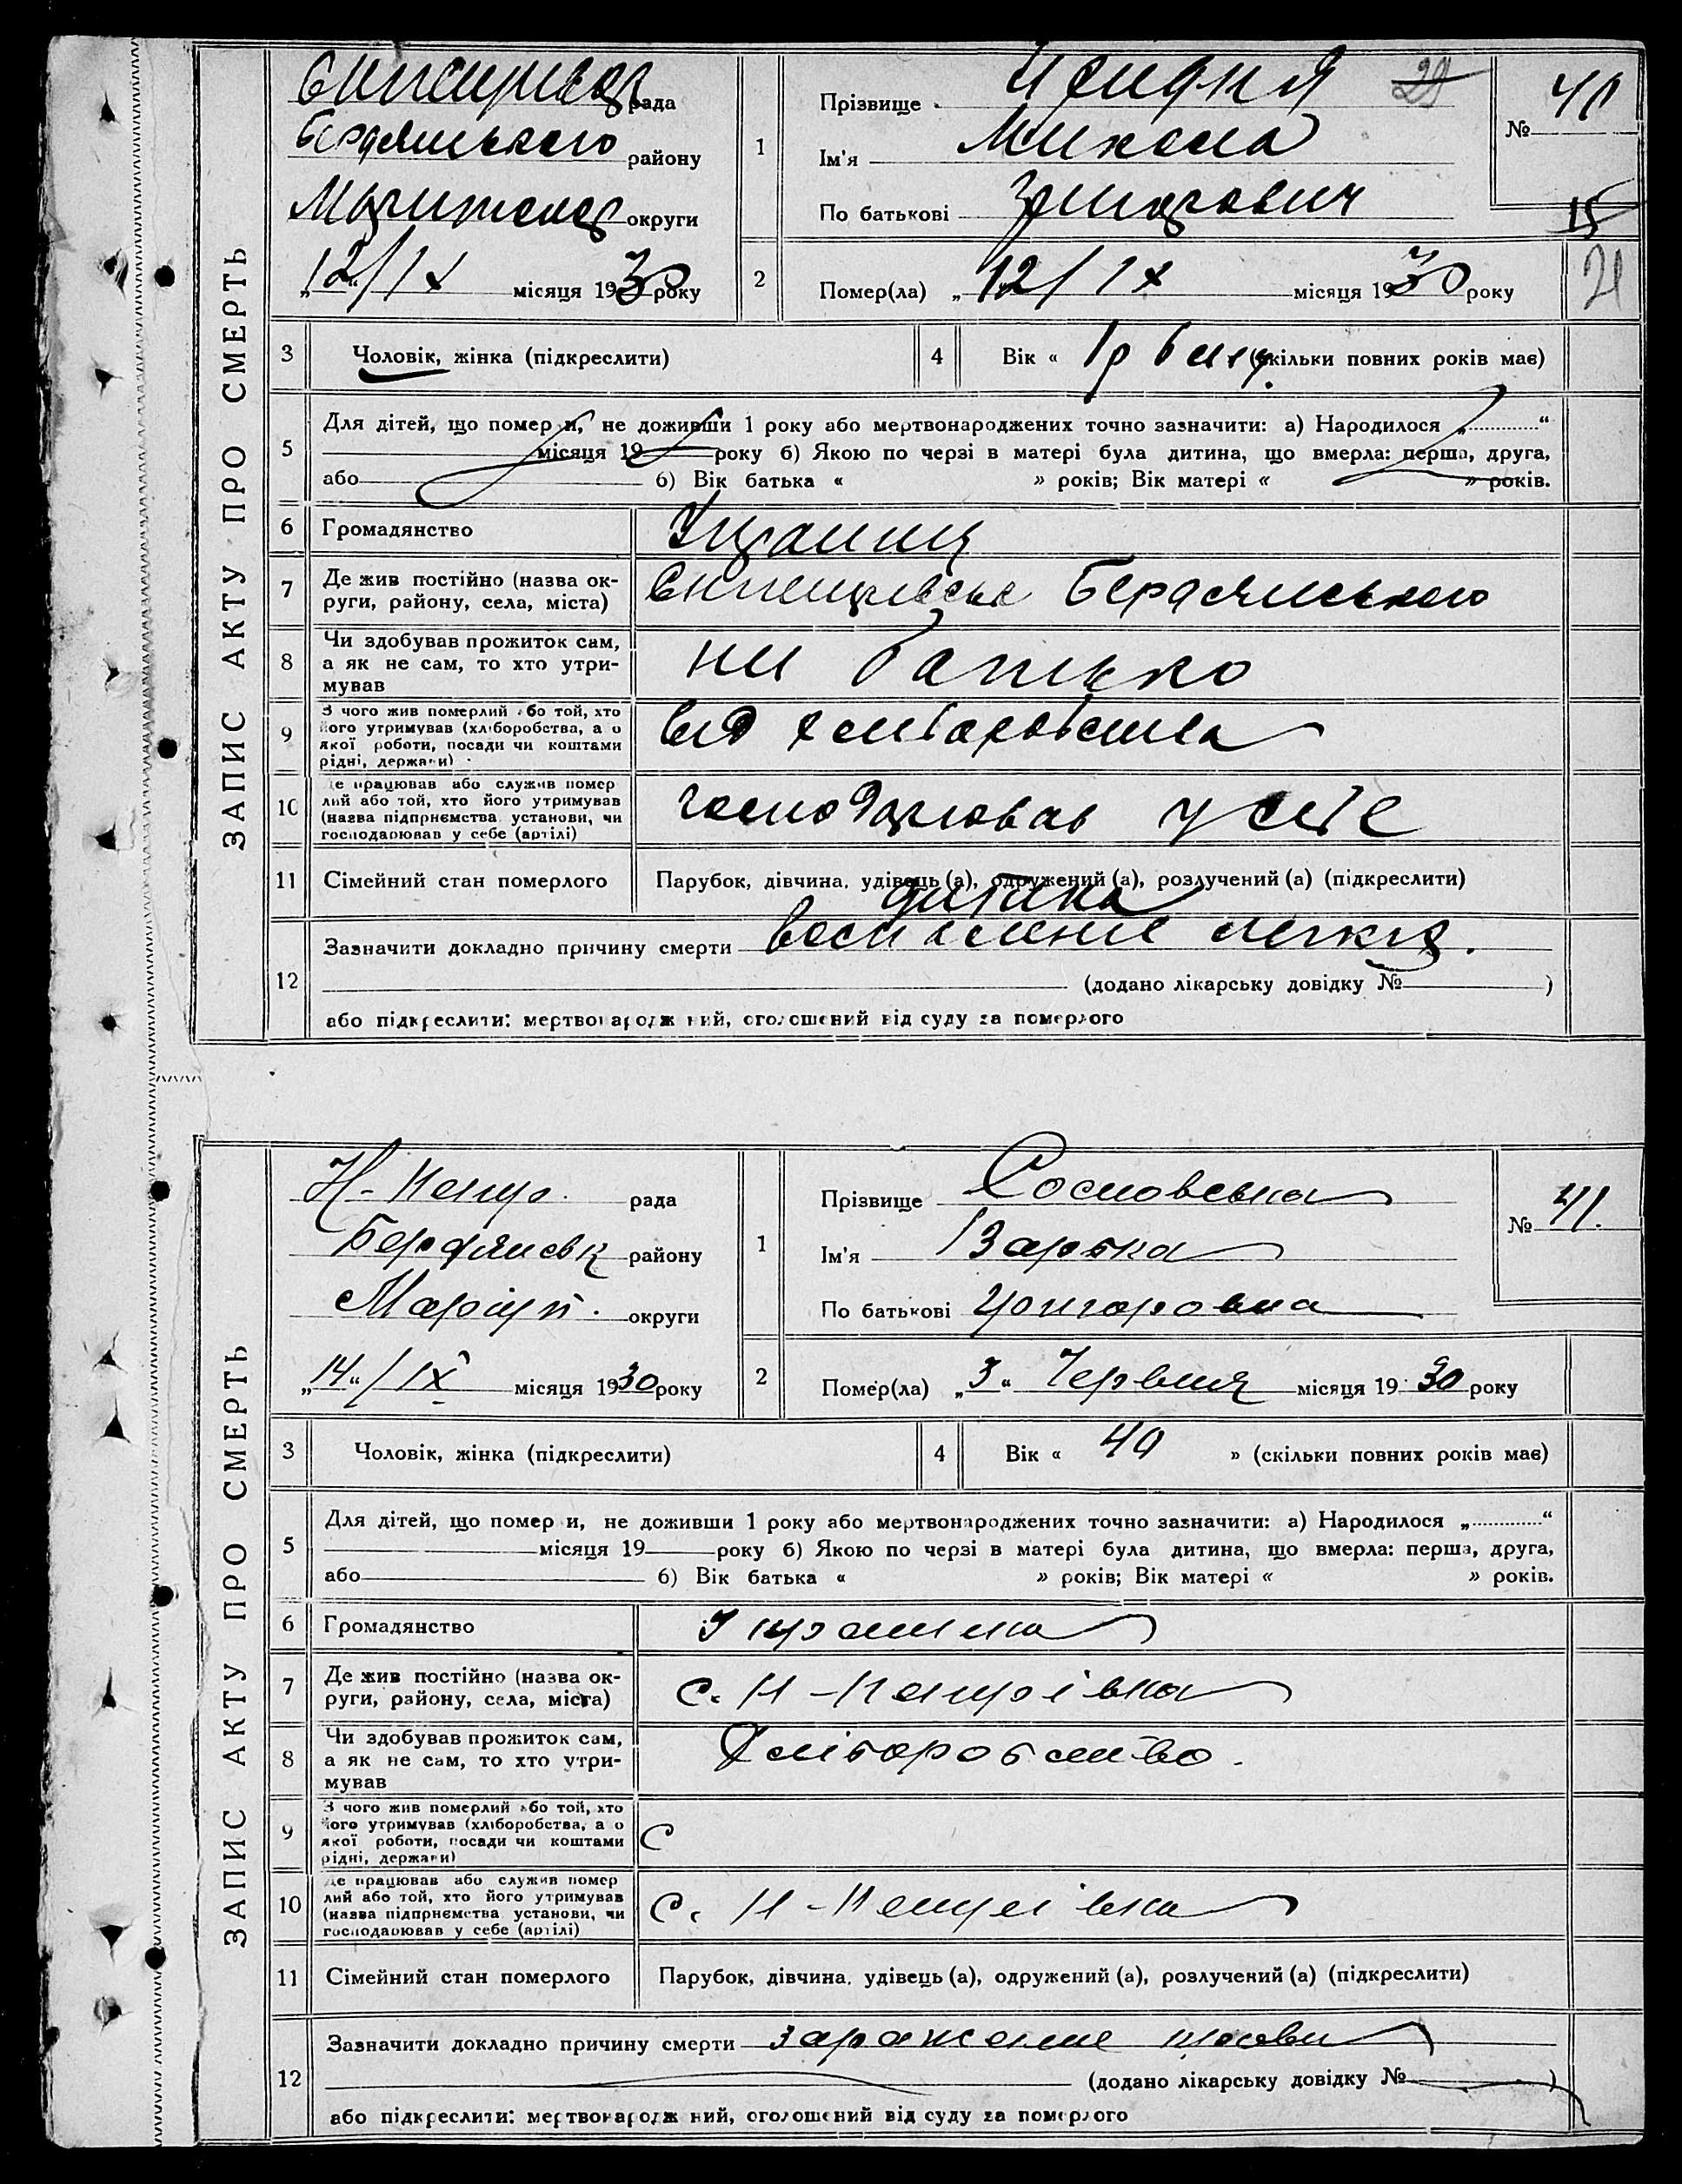 ЗАПИС АКТУ ПРО СМЕРТЬ
рада
Бердянського району
округи
„12“/IX місяця 1930 року
1
Прізвище
29
Ім'я Микола
По батькові
№ 40
15
21
2
Помер(ла) „12/IX місяця 1930 року
3
Чоловік, жінка (підкреслити)
4
Вік « 1р (скільки повних років має)
5
Для дітей, що померли, не доживши 1 року або мертвонароджених точно зазначити: а) Народилося „ “
місяця 19 року б) Якою по черзі в матері була дитина, що вмерла: перша, друга,
або б) Вік батька « » років; Вік матері « » років.
6
Громадянство
7
Де жив постійно (назва ок-
руги, району, села, міста)
Бердянського
8
Чи здобував прожиток сам,
а як не сам, то хто утри-
мував
ни батько
9
З чого жив померлий або той, хто
його утримував (хліборобства, а о
якої роботи, посади чи коштами
рідні, держави)
від хліборобства
10
Де працював або служив помер
лий або той, хто його утримував
(назва підприємства установи, чи
господарював у себе (артілі)
господарював у себе
11
Сімейний стан померлого
Парубок, дівчина, удівець (а), одружений (а), розлучений (а) (підкреслити)
дитина
12
Зазначити докладно причину смерти воспаление легких.
(додано лікарську довідку № )
або підкреслити: мертвонароджений, оголошений від суду за померлого
ЗАПИС АКТУ ПРО СМЕРТЬ
Н-Петро. рада
Бердянськ району
Маріуп. округи
„14“/IX місяця 1930 року
1
Прізвище Сосновська
Ім'я Варька
По батькові
№ 41.
2
Помер(ла) „3“ Червня місяця 1930 року
3
Чоловік, жінка (підкреслити)
4
Вік « 49 » (скільки повних років має)
5
Для дітей, що померли, не доживши 1 року або мертвонароджених точно зазначити: а) Народилося „ “
місяця 19 року б) Якою по черзі в матері була дитина, що вмерла: перша, друга,
або б) Вік батька « » років; Вік матері « » років.
6
Громадянство
Українка
7
Де жив постійно (назва ок-
руги, району, села, міста)
с. Н-Петрівка
8
Чи здобував прожиток сам,
а як не сам, то хто утри-
мував
Хліборобство.
9
З чого жив померлий або той, хто
його утримував (хліборобства, а о
якої роботи, посади чи коштами
рідні, держави)
С
10
Де працював або служив помер
лий або той, хто його утримував
(назва підприємства установи, чи
господарював у себе (артілі)
с. Н-Петрівка
11
Сімейний стан померлого
Парубок, дівчина, удівець (а), одружений (а), розлучений (а) (підкреслити)
12
Зазначити докладно причину смерти заражение крови
(додано лікарську довідку № )
або підкреслити: мертвонароджений, оголошений від суду за померлого